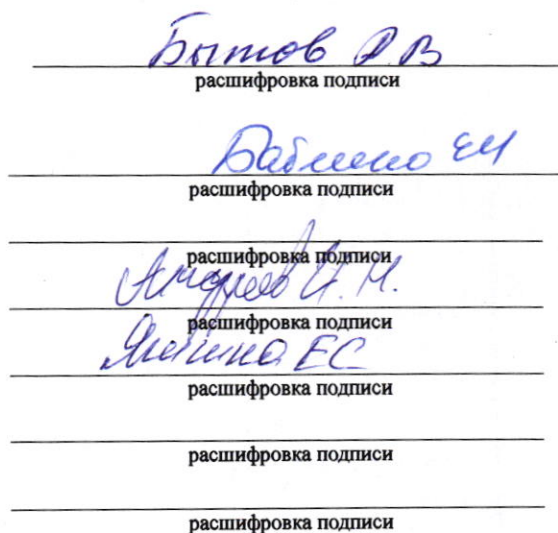 Бытов Р.В
расшифровка подписи
расшифровка подписи
расшифровка подписи
Андреев И. Н.
расшифровка подписи
ЕС
расшифровка подписи
расшифровка подписи
расшифровка подписи